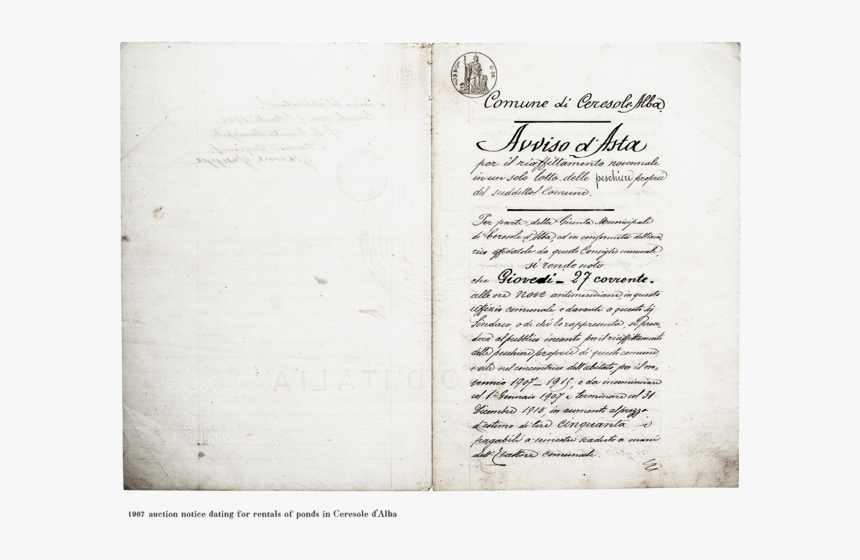 Comune di Ceresole Alba
Avviso d'Asta
per il riaffittamento novennale
in un solo lotto delle peschiere proprie
del suddetto Comune.
Per parte della Giunta Municipale
di Ceresole d'Alba, ed in conformità dell'inca
rico affidatole da questo Consiglio comunale,
si rende noto
che Giovedì - 27 corrente -
alle ore nove antimeridiane, in questo
Uffizio comunale e davanti a questo Sig
Sindaco, o di chi lo rappresenta, si proce
derà al pubblico incanto per il riaffittamento
delle peschiere proprie di questo comune
site nel concentrico dell'abitato, per il no
vennio 1907 - 1915, e da incominciare
col 1° Gennaio 1907 e terminare col 31
Dicembre 1915, in aumento al prezzo
d'estimo di lire cinquanta
pagabili a semestre scaduto a mani
dell'Esattore comunale.
O D'ITALIA
1907 auction notice dating for rentals of ponds in Ceresole d'Alba